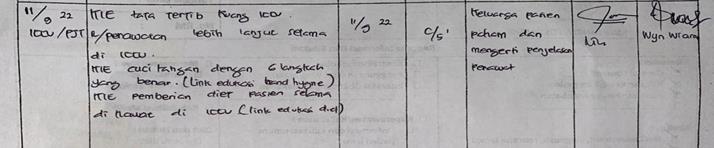 11/9 22
ICU/PJT
KIE tata Tertib Ruang ICU.
u/perawatan lebih lanjut selama
di ICU.
KIE cuci tangan dengan 6 langkah
yang benar. (Link edukasi hand hygne)
KIE pemberian diet pasien selama
di Rawat di ICU (link edukasi diet)
11/9 22
C/S
Keluarga pasien
paham dan
mengerti penjelasan
Perawat
Wyn Wram